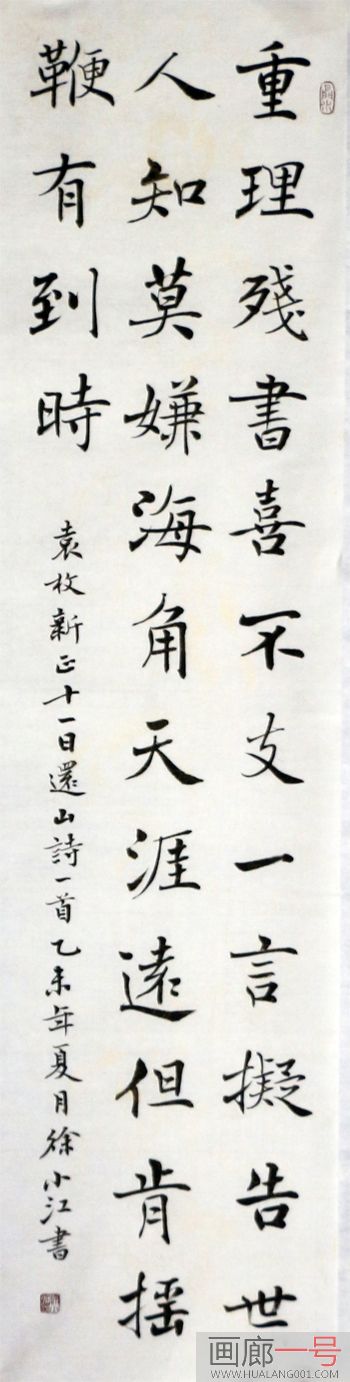 重理残書喜不支一言擬告世
人知莫嫌海角天涯遠但肯摇
鞭有到時
袁枚新正十一日還山詩一首乙未年夏月徐小江書
画廊一号
WWW.HUALANG001.COM